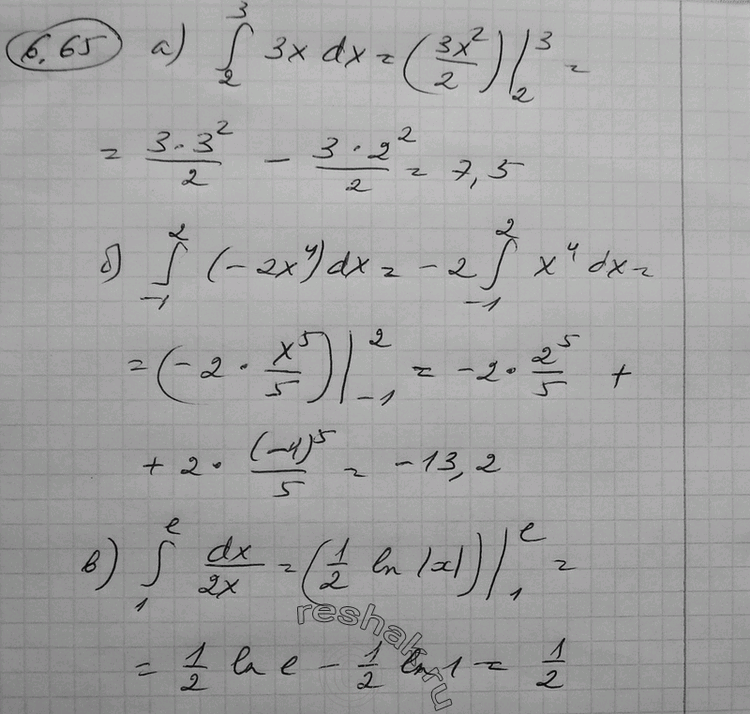 6.65 а) ∫₂³ 3x dx = (3x²/2)|₂³ =
= 3·3²/2 − 3·2²/2 = 7,5
б) ∫₋₁² (−2x⁴)dx = −2 ∫₋₁² x⁴ dx =
= (−2 · x⁵/5)|₋₁² = −2 · 2⁵/5 +
+ 2 · (−1)⁵/5 = −13,2
в) ∫₁ᵉ dx/2x = (1/2 ln |x|)|₁ᵉ =
= 1/2 ln e − 1/2 ln 1 = 1/2
reshak.ru